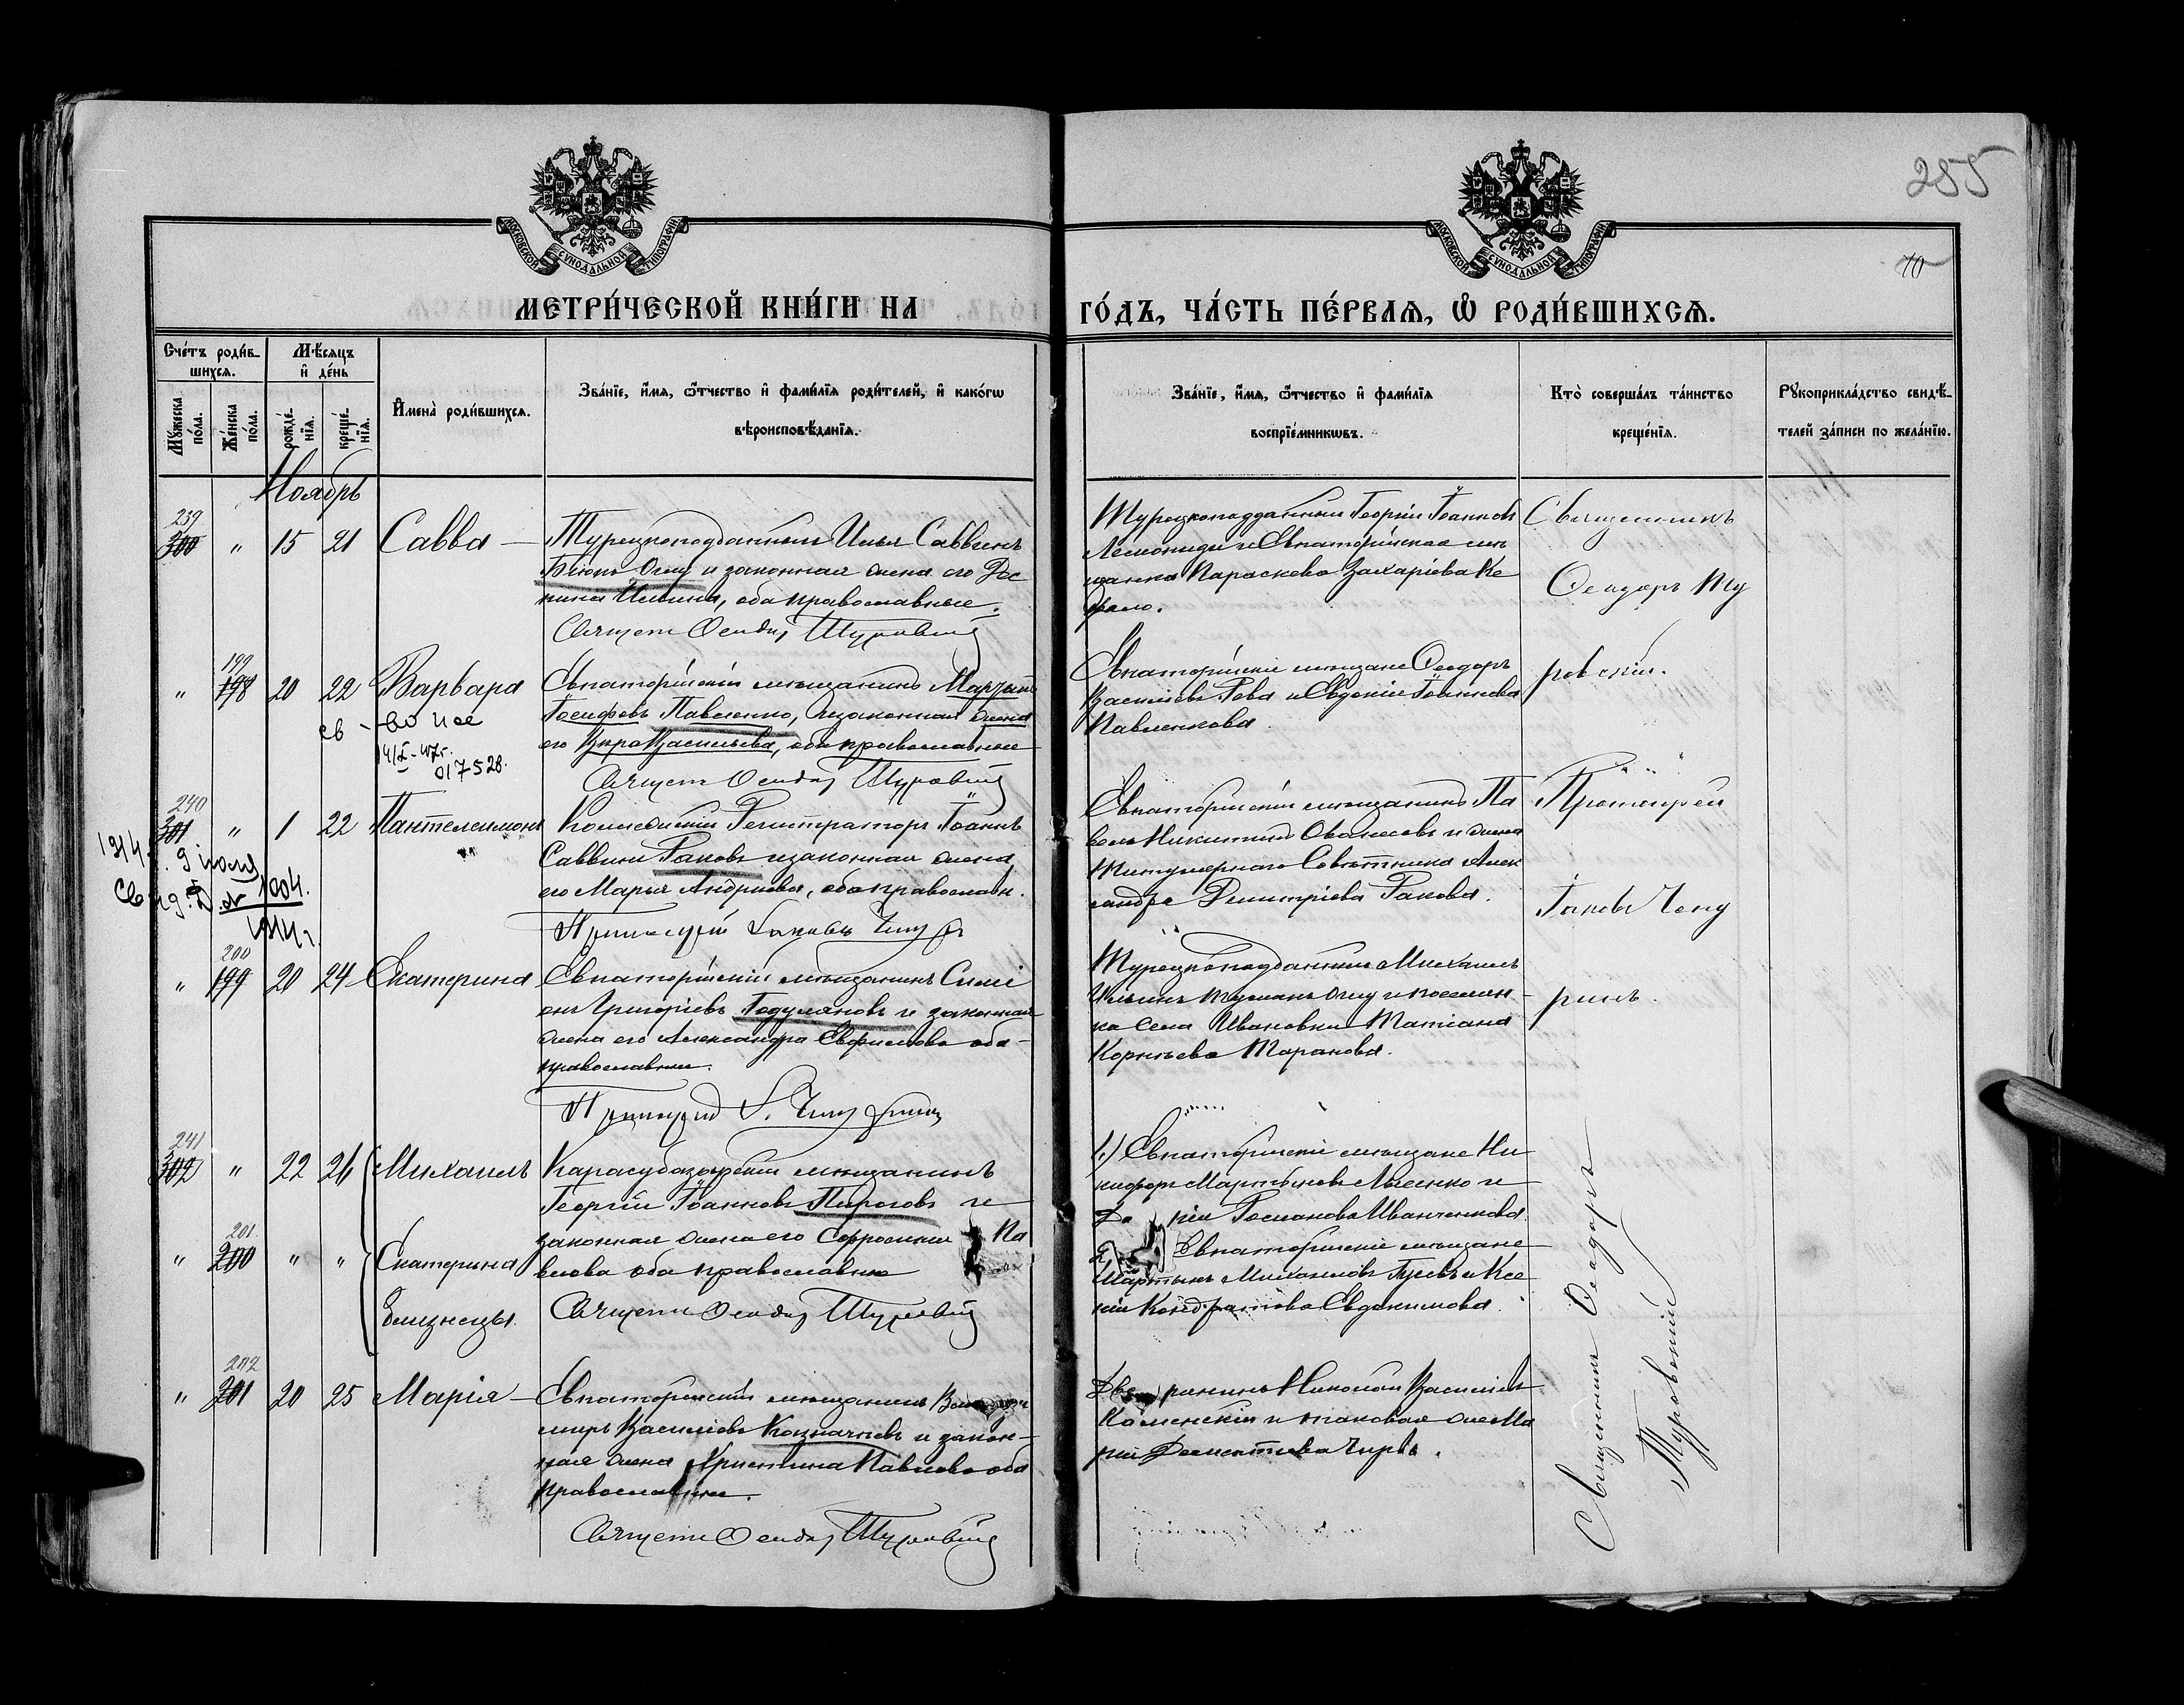 255
70
МОСКОВСКОЙ СѴНОДАЛЬНОЙ ТИПОГРАФІИ
МОСКОВСКОЙ СѴНОДАЛЬНОЙ ТИПОГРАФІИ
МЕТРИ́ЧЕСКОЙ КНИ́ГИ НА ГО́ДЪ, ЧА́СТЬ ПЕ́РВАѦ, Ѡ҆ РОДИ́ВШИХСѦ.
Сче́тъ роди́в-
шихсѧ.
Мѣ́сѧцъ
и҆ де́нь
Мꙋ́жеска по́ла.
Же́нска по́ла.
рожде́-
нїѧ.
креще́-
нїѧ.
И҆мена̀ роди́вшихсѧ.
Зва́нїе, и҆́мѧ, ѻ҆́тчество и҆ фами́лїѧ роди́телей, и҆ како́гѡ
вѣроисповѣ́данїѧ.
Зва́нїе, и҆́мѧ, ѻ҆́тчество и҆ фами́лїѧ
воспрїе́мникѡвъ.
Кто̀ соверша́лъ та́инство
креще́нїѧ.
Рꙋкоприкла́дство свидѣ́-
телей за́писи по жела́нїю.
Ноябрь
239
300 " 15 21 Савва —
Турецкоподданный Илья Саввинъ
и законная жена его Дес
пина Ильина, оба православные.
Священ Ѳеодор Туровскій
Турецкоподданный Георгій Іоанновъ
и Евпаторійская мѣ
щанка Параскева Захаріева Ке
фало.
Священникъ
Ѳеодоръ Ту
ровскій.
199
" 198 20 22 Варвара
св-во
017528.
Евпаторійскій мѣщанинъ
Іосифовъ Павленко, и законная жена
его Вѣра Васильева, оба православные
Священ Ѳеодор Туровскій
Евпаторійскіе мѣщане Ѳеодоръ
Васильевъ Рева и Евдокія Іоаннова
Павленкова.
240
301 " 1 22 Пантелеимонъ
1914 г. 9 іюля
1004.
1914 г.
Коллежскій Регистраторъ Іоаннъ
Саввинъ Раковъ и законная жена
его Марія Андреева, оба православн.
Протоіерей Іаковъ Чепуринъ
Евпаторійскій мѣщанинъ Па
велъ Никитинъ Ованесовъ и жена
Титулярнаго Совѣтника Алек
сандра Димитріева Ракова.
Протоіерей
Іаковъ Чепу
ринъ.
200
" 199 20 24 Екатерина
Евпаторійскій мѣщанинъ Симе
онъ Григоріевъ Годуляновъ и законная
жена его Александра Евфимова оба
православные.
Протоіерей І. Чепуринъ
Турецкоподданный Михаилъ
Ильинъ Туманъ Оглу и поселян-
ка села Ивановки Татіана
Корнѣева Таранова.
241
302 " 22 26 Михаилъ
Карасубазарскій мѣщанинъ
Георгій Іоанновъ Пироговъ и
законная жена его Софронія Па
влова оба православные
Священ Ѳеодор Туровскій
201
" 200 " " Екатерина
близнецы.
1.) Евпаторійскіе мѣщане Ни
кифоръ Мартыновъ Лысенко и
Да рія Романова Иванченкова
2) Евпаторійскіе мѣщане
Мартынъ Михаиловъ Гусевъ и Ксе
нія Кондратова Евдокимова.
Священникъ Ѳеодоръ
Туровскій
202
" 201 20 25 Марія —
Евпаторійскій мѣщанинъ
миръ Васильевъ Казначѣевъ и закон-
ная жена Христина Павлова оба
православные.
Священ Ѳеодор Туровскій
Дво рянинъ Николай Васильевъ
Каменскій и таковая же Ма
рія Дементьева Чирва.